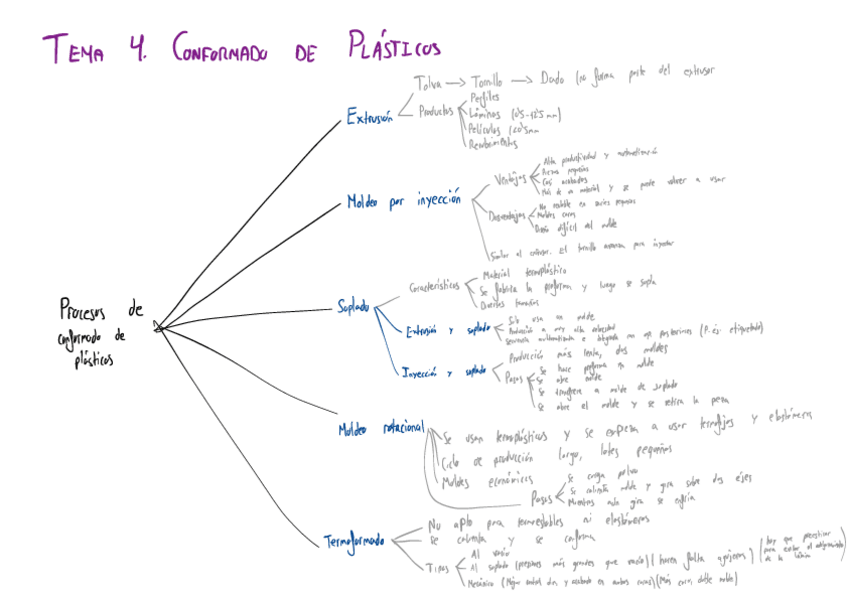 TEMA 4. CONFORMADO DE PLÁSTICOS
Procesos de
conformado de
plásticos
Extrusión
Tolva → Tornillo → Dado (no forma parte del extrusor
Productos
Perfiles
Láminas (0'5-12'5 mm)
Películas (<0'5mm
Recubrimientos
Moldeo por inyección
Ventajas
Alta productividad y automatización
Piezas pequeñas
Casi acabados
Más de un material y se puede volver a usar
Desventajas
No rentable en series pequeñas
Moldes caros
Diseño difícil del molde
Similar al extrusor. El tornillo avanza para inyectar
Soplado
Características
Material termoplástico
Se fabrica la preforma y luego se sopla
Diversos tamaños
Extrusión y soplado
Sólo usa un molde
Producción a muy alta velocidad
Secuencia automatizada e integrada con op. posteriores (P. ej. etiquetado)
Inyección y soplado
Producción más lenta, dos moldes
Pasos
Se hace preforma en molde
Se abre molde
Se transfiere a molde de soplado
Se abre el molde y se retira la pieza
Moldeo rotacional
Se usan termoplásticos y se empieza a usar termofijos y elastómeros
Ciclo de producción largo, lotes pequeños
Moldes económicos
Pasos
Se carga polvo
Se calienta molde y gira sobre dos ejes
Mientras aún gira se enfría
Termoformado
No apto para termoestables ni elastómeros
Se calienta y se conforma
Tipos
Al vacío
Al soplado (presiones más grandes que vacío) (hacen falta agujeros)
(hay que preestirar
para evitar el adelgazamiento
de la lámina
Mecánico (Mejor control dim. y acabado en ambas caras) (Más caro, doble molde)